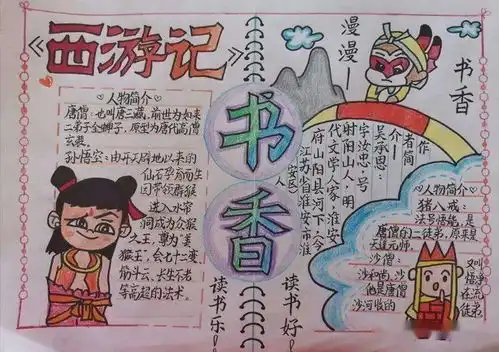 《西游记》
<人物简介>
唐僧:也叫唐三藏,前世为如来
二弟子金蝉子,原型为唐代高僧
玄奘。
孙悟空:由开天辟地以来的
仙石孕育而生
因带领群猴
进入水帘
洞而成为众猴
大王,尊为"美
猴王,会七十二变、
筋斗云、长生不老
等高超的法术。
书香
读书乐!
读书好!
漫漫一
书香
作
者简
介一
吴承恩
字汝忠·号
时阳山人,明
代文学家·淮安
府山阳县河下(今
江苏省淮安市淮
安区)
<人物简介>
猪八戒:
法号悟能,是
唐僧的二徒弟,原来是
天蓬元帅。
沙僧:
沙和尚,沙 又叫
他是唐僧 悟净
沙河收的 在流
徒弟